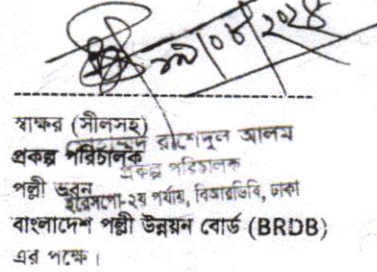 ২৯/০৮/২০২৪
স্বাক্ষর (সীলসহ)
রাশেদুল আলম
প্রকল্প পরিচালক
প্রকল্প পরিচালক
পল্লী ভবন
ইরেসপো-২য় পর্যায়, বিআরডিবি, ঢাকা
বাংলাদেশ পল্লী উন্নয়ন বোর্ড (BRDB)
এর পক্ষে।